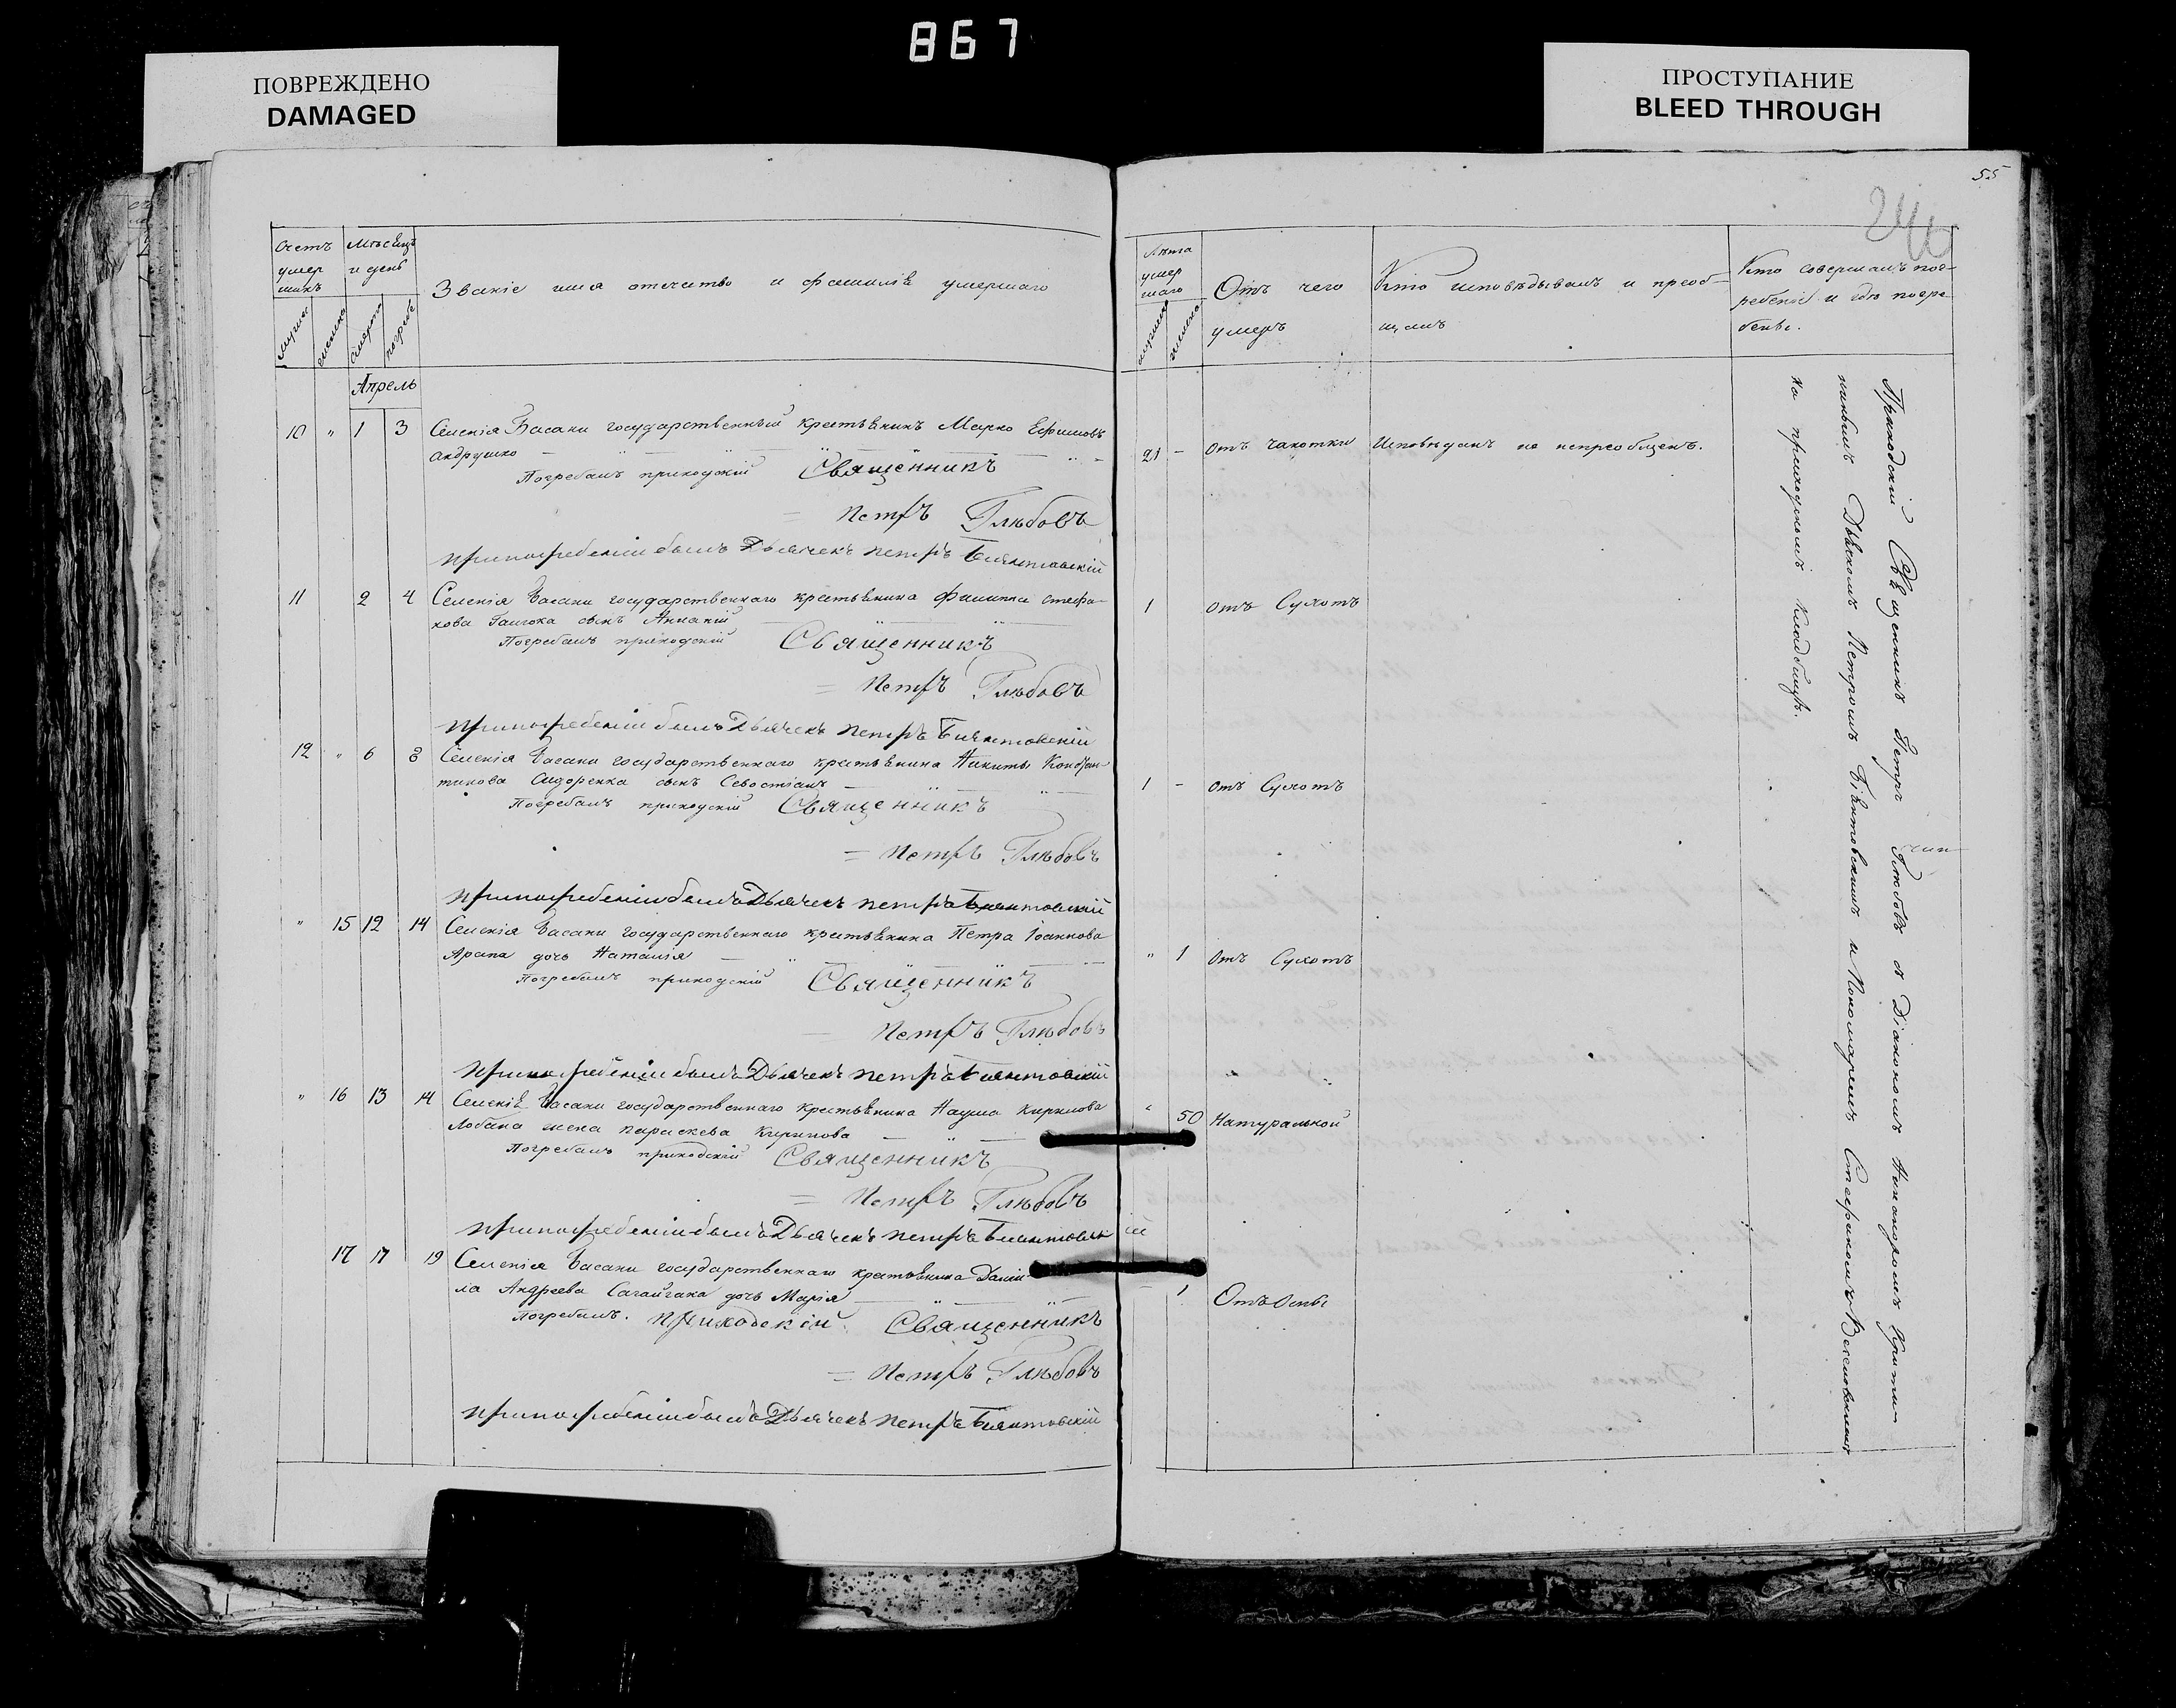 867
ПОВРЕЖДЕНО
DAMAGED
ПРОСТУПАНИЕ
BLEED THROUGH
55
Счетъ умершихъ
Мѣсяцъ и день
Званіе имя отечество и фамилія умершаго
Апрель
10 " 1 3 Селенія Басани государственный крестьянинъ Марко Ефимовъ
Андрушко
Погребалъ приходскій Священникъ
Петръ Глѣбовъ
При погребеніи былъ Дьячекъ Петръ
11 2 4 Селенія Басани государственнаго крестьянина Филиппа Стефа-
нова сынъ Ананій
Погребалъ приходскій Священникъ
Петръ Глѣбовъ
При погребеніи былъ Дьячекъ Петръ
12 " 6 8 Селенія Басани государственнаго крестьянина Никиты Констан-
тинова Сидоренка сынъ Севостіанъ
Погребалъ приходскій Священникъ
Петръ Глѣбовъ
При погребеніи былъ Дьячекъ Петръ
" 15 12 14 Селенія Басани государственнаго крестьянина Петра Іоаннова
Арапа дочь Наталія
Погребалъ приходскій Священникъ
Петръ Глѣбовъ
При погребеніи былъ Дьячекъ Петръ
" 16 13 14 Селенія Басани государственнаго крестьянина Наума Кирилова
Лобана жена Параскева Кирилова
Погребалъ приходскій Священникъ
Петръ Глѣбовъ
При погребеніи былъ Дьячекъ Петръ
17 17 19 Селенія Басани государственнаго крестьянина Даніи-
ла Андреева дочь Марія
Погребалъ приходскій Священникъ
Петръ Глѣбовъ
При погребеніи былъ Дьячекъ Петръ
Лѣта умершаго
Отъ чего умеръ
Кто исповѣдывалъ и пріоб-
щалъ
Кто совершалъ пог-
ребеніе и гдѣ погре-
бены.
21 - Отъ чахотки Исповѣданъ не непреобщенъ.
1 Отъ Сухотъ
1 - Отъ Сухотъ
" 1 Отъ Сухотъ
" 50 Натуральной
1 Отъ Оспы
Приходскій Священникъ Петръ Глѣбовъ съ Діакономъ Никаноромъ
Дьячкомъ Петромъ и Пономаремъ
на приходскомъ кладбищѣ.